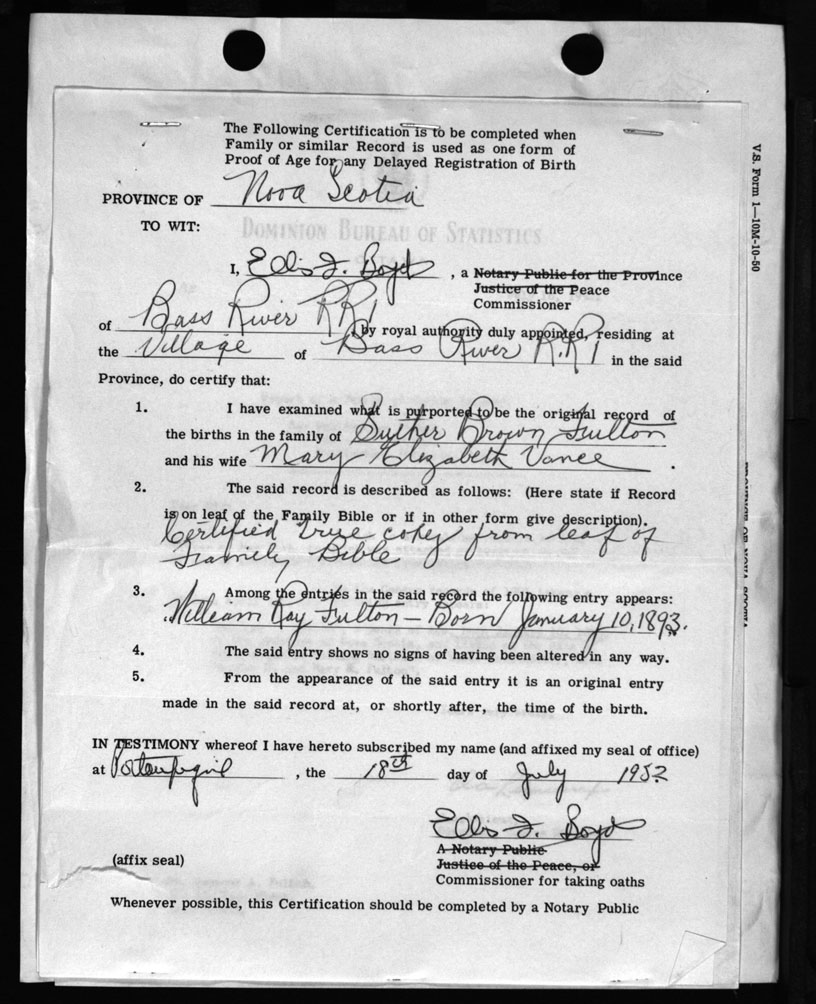 The Following Certification is to be completed when
Family or similar Record is used as one form of
Proof of Age for any Delayed Registration of Birth
PROVINCE OF Nova Scotia
TO WIT:
DOMINION BUREAU OF STATISTICS
I, Ellis J. Boyd, a Notary Public for the Province
Justice of the Peace
Commissioner
of Bass River RR1 by royal authority duly appointed, residing at
the Village of Bass River R.R1 in the said
Province, do certify that:
1. I have examined what is purported to be the original record of
the births in the family of Suther Brown Fulton
and his wife Mary Elizabeth Vance.
2. The said record is described as follows: (Here state if Record
is on leaf of the Family Bible or if in other form give description).
Certified true copy from leaf of
Family Bible
3. Among the entries in the said record the following entry appears:
William Ray Fulton - Born January 10, 1893.
4. The said entry shows no signs of having been altered in any way.
5. From the appearance of the said entry it is an original entry
made in the said record at, or shortly after, the time of the birth.
IN TESTIMONY whereof I have hereto subscribed my name (and affixed my seal of office)
at Portaupique, the 18th day of July 1952
Ellis J. Boyd
A Notary Public
Justice of the Peace, or
(affix seal)
Commissioner for taking oaths
Whenever possible, this Certification should be completed by a Notary Public
V.S. Form 1—10M-10-50